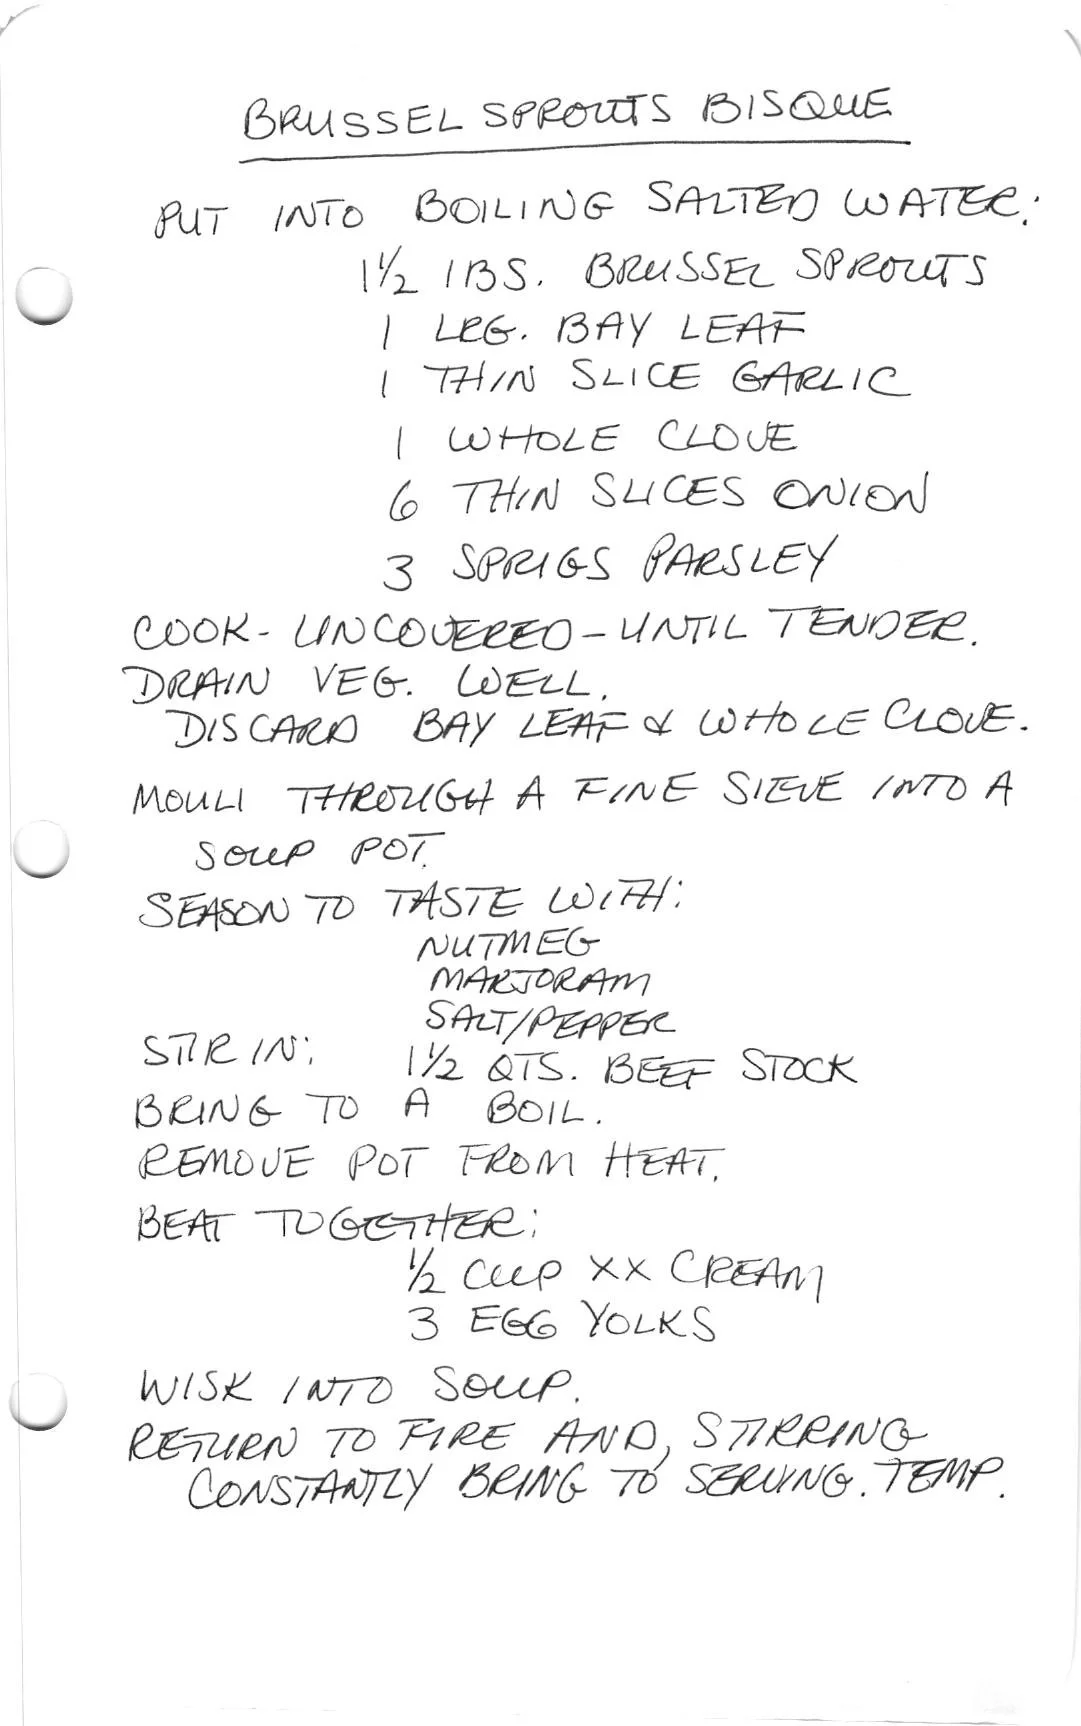 BRUSSEL SPROUTS BISQUE
PUT INTO BOILING SALTED WATER:
1 1/2 lBS. BRUSSEL SPROUTS
1 LRG. BAY LEAF
1 THIN SLICE GARLIC
1 WHOLE CLOVE
6 THIN SLICES ONION
3 SPRIGS PARSLEY
COOK - UNCOVERED - UNTIL TENDER.
DRAIN VEG. WELL.
DISCARD BAY LEAF & WHOLE CLOVE.
MOULI THROUGH A FINE SIEVE INTO A
SOUP POT.
SEASON TO TASTE WITH:
NUTMEG
MARJORAM
SALT/PEPPER
STIR IN: 1 1/2 QTS. BEEF STOCK
BRING TO A BOIL.
REMOVE POT FROM HEAT.
BEAT TOGETHER:
1/2 CUP XX CREAM
3 EGG YOLKS
WISK INTO SOUP.
RETURN TO FIRE AND, STIRRING
CONSTANTLY BRING TO SERVING. TEMP.